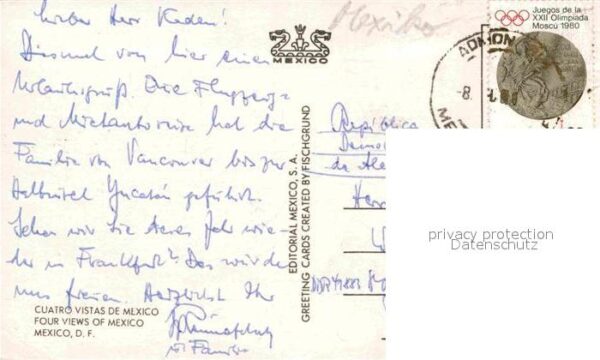 Lieber Herr Kaden!
Diesmal von hier einen
Urlaubsgruß. Die Flugzeug-
und Mietautoreise hat die
Familie von Vancouver bis zur
Halbinsel Yucatán geführt.
Sehen wir Sie dieses Jahr wie-
der in Frankfurt? Das würde
uns freuen. Herzlichst Ihr
Familie
CUATRO VISTAS DE MEXICO
FOUR VIEWS OF MEXICO
MEXICO, D. F.
Mexiko
MEXICO
EDITORIAL MEXICO, S. A.
GREETING CARDS CREATED BY FISCHGRUND
Juegos de la
XXII Olimpiada
Moscú 1980
ADMON
-8.
ME
República
Demo
de Ale
Herr
privacy protection
Datenschutz